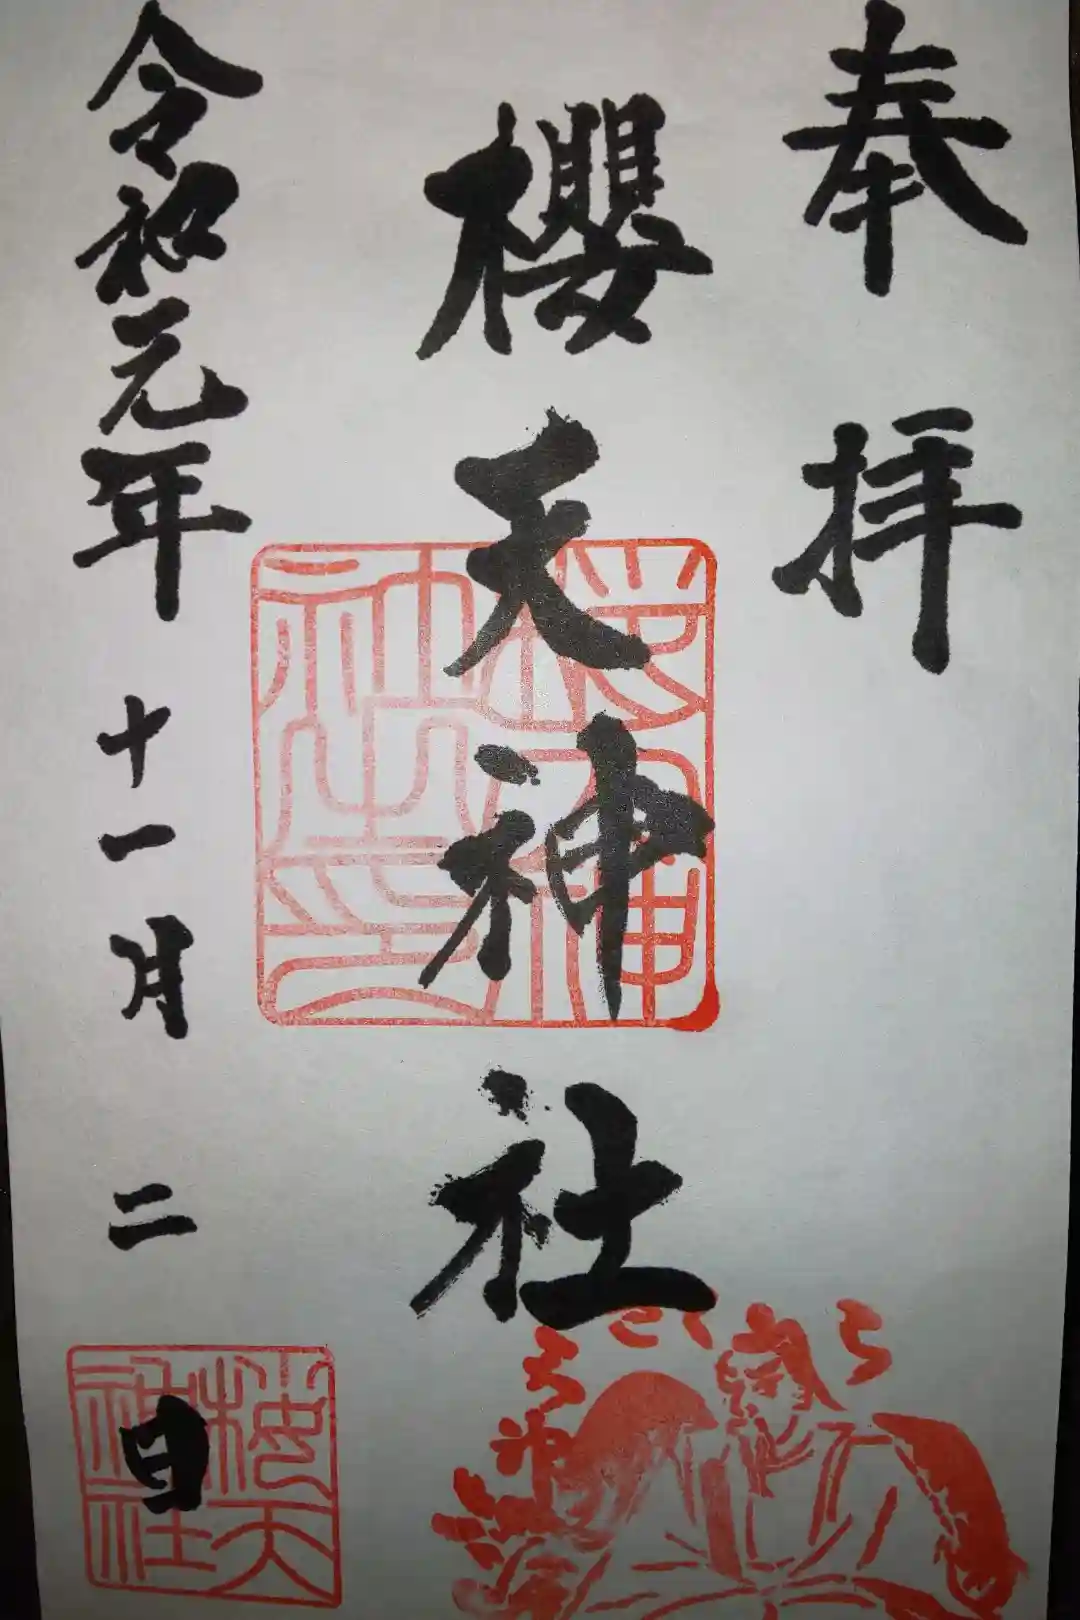 奉拝
櫻天神社
令和元年十一月二日
桜天神社